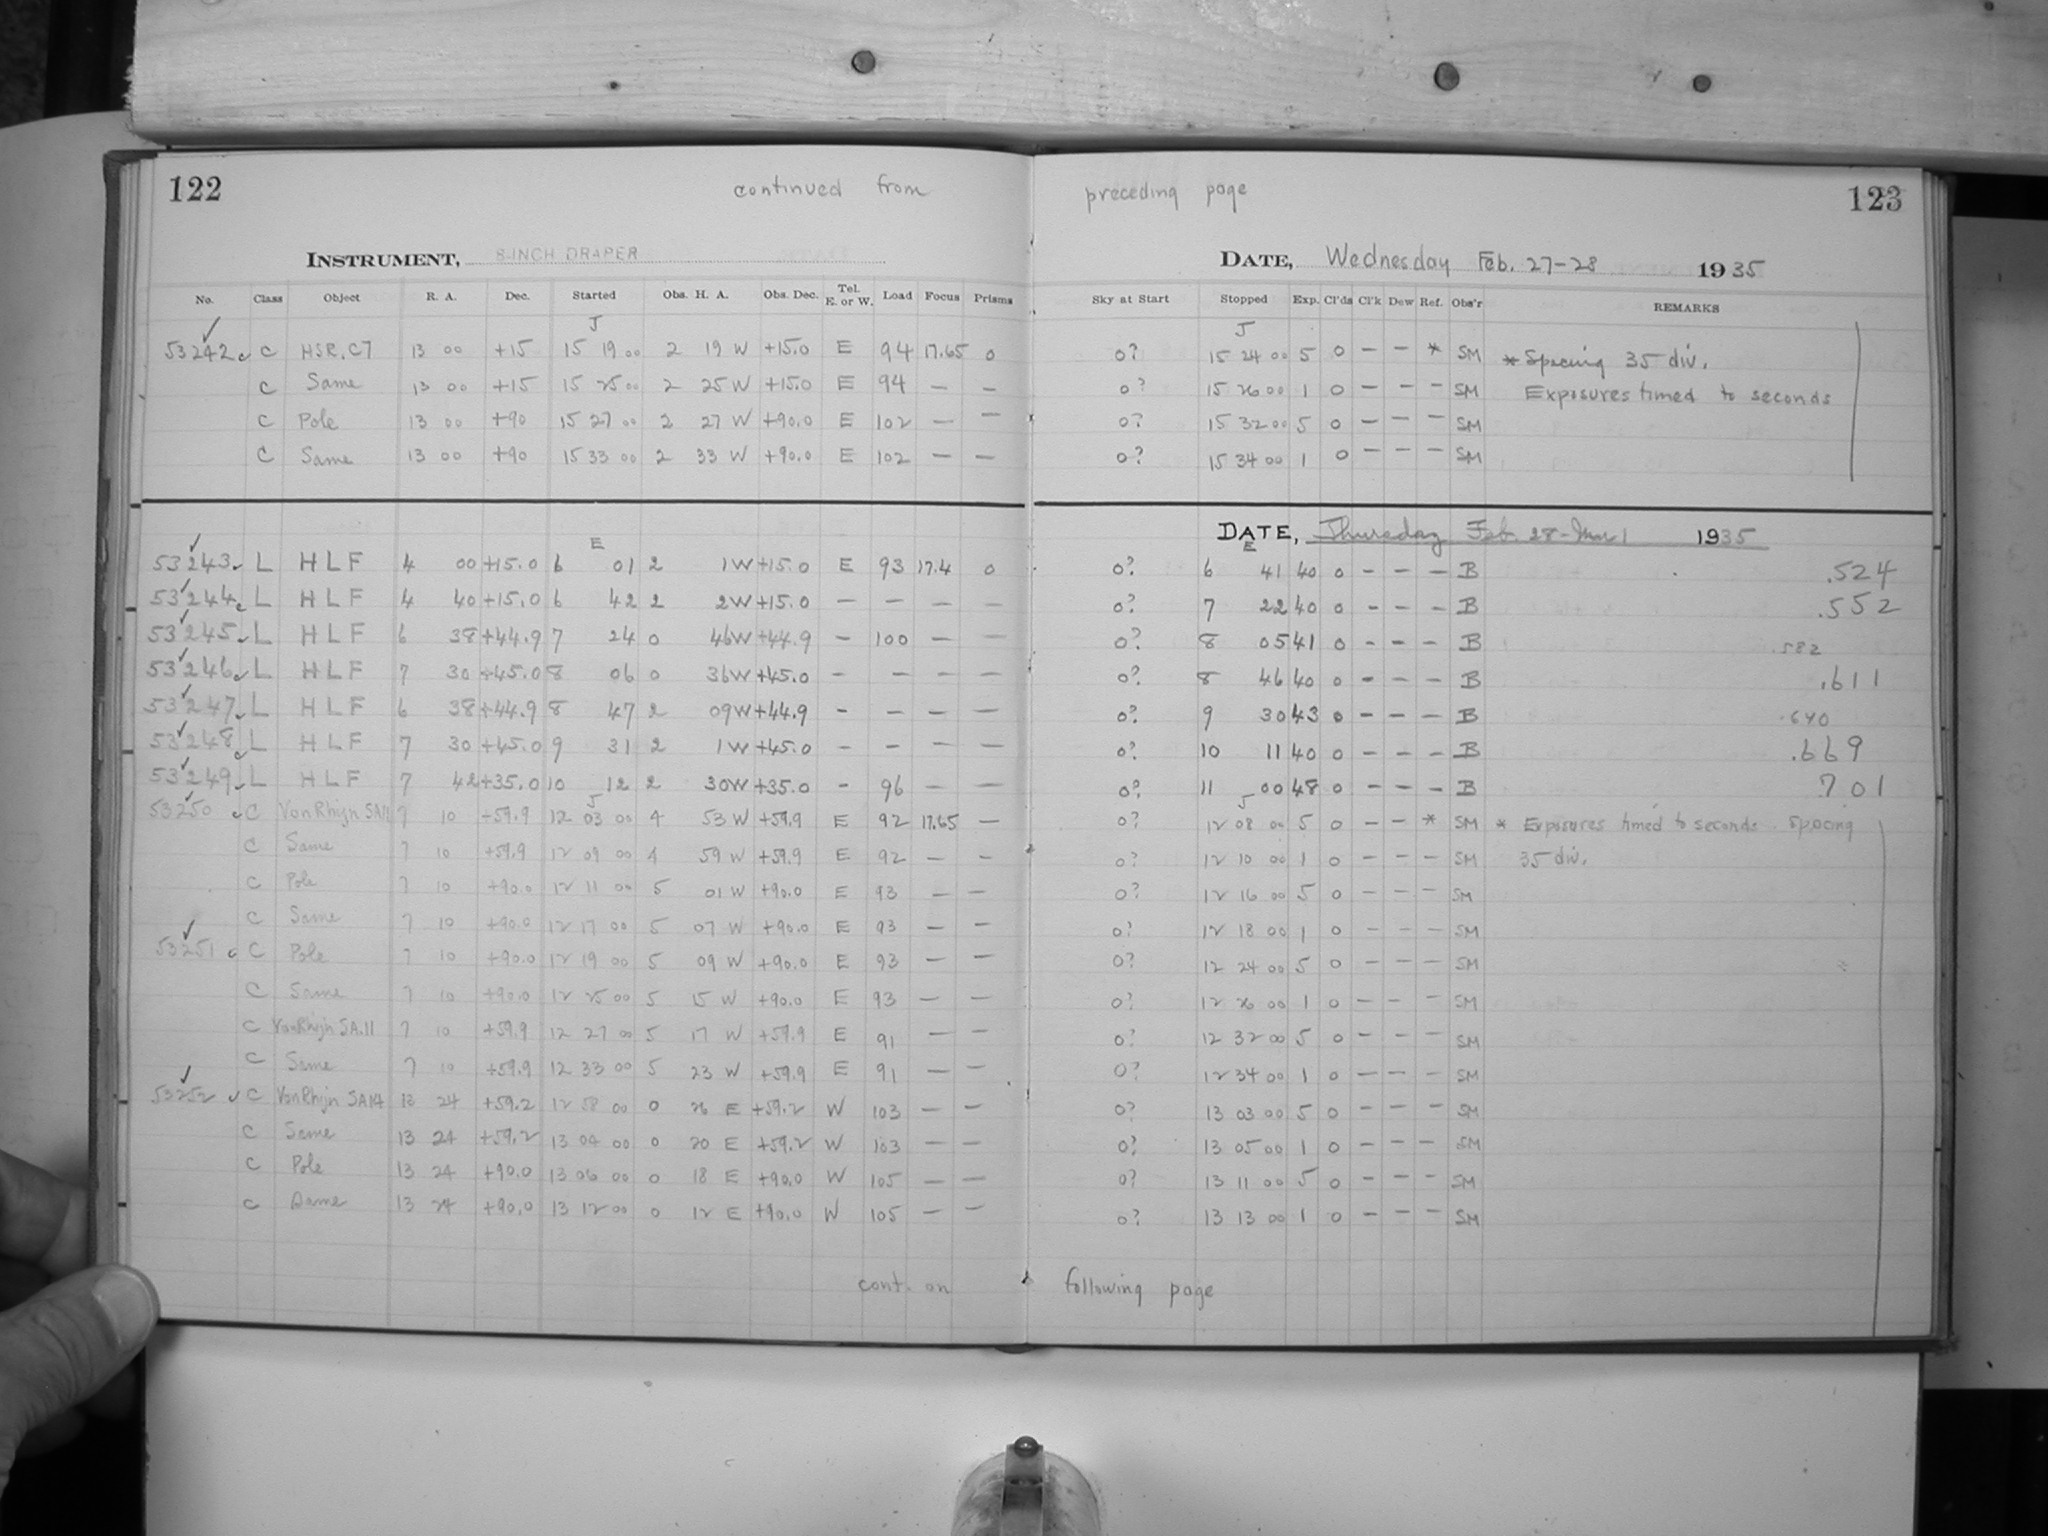 122 continued from preceding page 123
INSTRUMENT, 8-INCH DRAPER DATE, Wednesday Feb. 27-28 1935
No. Class Object R. A. Dec. Started Obs. H. A. Obs. Dec. Tel. E. or W. Load Focus Prisms Sky at Start Stopped Exp. Cl'ds Cl'k Dew Ref. Obs'r REMARKS
J J
53242 c C HSR.C7 13 00 +15 15 19 00 2 19 W +15.0 E 94 17.65 0 0? 15 24 00 5 0 – – * SM * Spacing 35 div.
C Same 13 00 +15 15 25 00 2 25 W +15.0 E 94 – – 0? 15 26 00 1 0 – – – SM Exposures timed to seconds
C Pole 13 00 +90 15 27 00 2 27 W +90.0 E 102 – – 0? 15 32 00 5 0 – – – SM
C Same 13 00 +90 15 33 00 2 33 W +90.0 E 102 – – 0? 15 34 00 1 0 – – – SM
DATE, Thursday Feb. 28-Mar 1 1935
E E
53243 c L H L F 4 00 +15.0 6 01 2 1 W +15.0 E 93 17.4 0 0? 6 41 40 0 – – – B .524
53244 c L H L F 4 40 +15.0 6 42 2 2 W +15.0 – – – – 0? 7 22 40 0 – – – B .552
53245 c L H L F 6 38 +44.9 7 24 0 46 W +44.9 – 100 – – 0? 8 05 41 0 – – – B .582
53246 c L H L F 7 30 +45.0 8 06 0 36 W +45.0 – – – – 0? 8 46 40 0 – – – B .611
53247 c L H L F 6 38 +44.9 8 47 2 09 W +44.9 – – – – 0? 9 30 43 0 – – – B .640
53248 c L H L F 7 30 +45.0 9 31 2 1 W +45.0 – – – – 0? 10 11 40 0 – – – B .669
53249 c L H L F 7 42 +35.0 10 12 2 30 W +35.0 – 96 – – 0? 11 00 48 0 – – – B 701
J J
53250 c C Van Rhijn SA11 7 10 +59.9 12 03 00 4 53 W +59.9 E 92 17.65 – 0? 12 08 00 5 0 – – * SM * Exposures timed to seconds. Spacing
C Same 7 10 +59.9 12 09 00 4 59 W +59.9 E 92 – – 0? 12 10 00 1 0 – – – SM 35 div.
C Pole 7 10 +90.0 12 11 00 5 01 W +90.0 E 93 – – 0? 12 16 00 5 0 – – – SM
C Same 7 10 +90.0 12 17 00 5 07 W +90.0 E 93 – – 0? 12 18 00 1 0 – – – SM
53251 c C Pole 7 10 +90.0 12 19 00 5 09 W +90.0 E 93 – – 0? 12 24 00 5 0 – – – SM
C Same 7 10 +90.0 12 25 00 5 15 W +90.0 E 93 – – 0? 12 26 00 1 0 – – – SM
C Van Rhijn SA.11 7 10 +59.9 12 27 00 5 17 W +59.9 E 91 – – 0? 12 32 00 5 0 – – – SM
C Same 7 10 +59.9 12 33 00 5 23 W +59.9 E 91 – – 0? 12 34 00 1 0 – – – SM
53252 c C Van Rhijn SA14 13 24 +59.2 12 58 00 0 26 E +59.2 W 103 – – 0? 13 03 00 5 0 – – – SM
C Same 13 24 +59.2 13 04 00 0 20 E +59.2 W 103 – – 0? 13 05 00 1 0 – – – SM
C Pole 13 24 +90.0 13 06 00 0 18 E +90.0 W 105 – – 0? 13 11 00 5 0 – – – SM
C Same 13 24 +90.0 13 12 00 0 12 E +90.0 W 105 – – 0? 13 13 00 1 0 – – – SM
cont. on following page